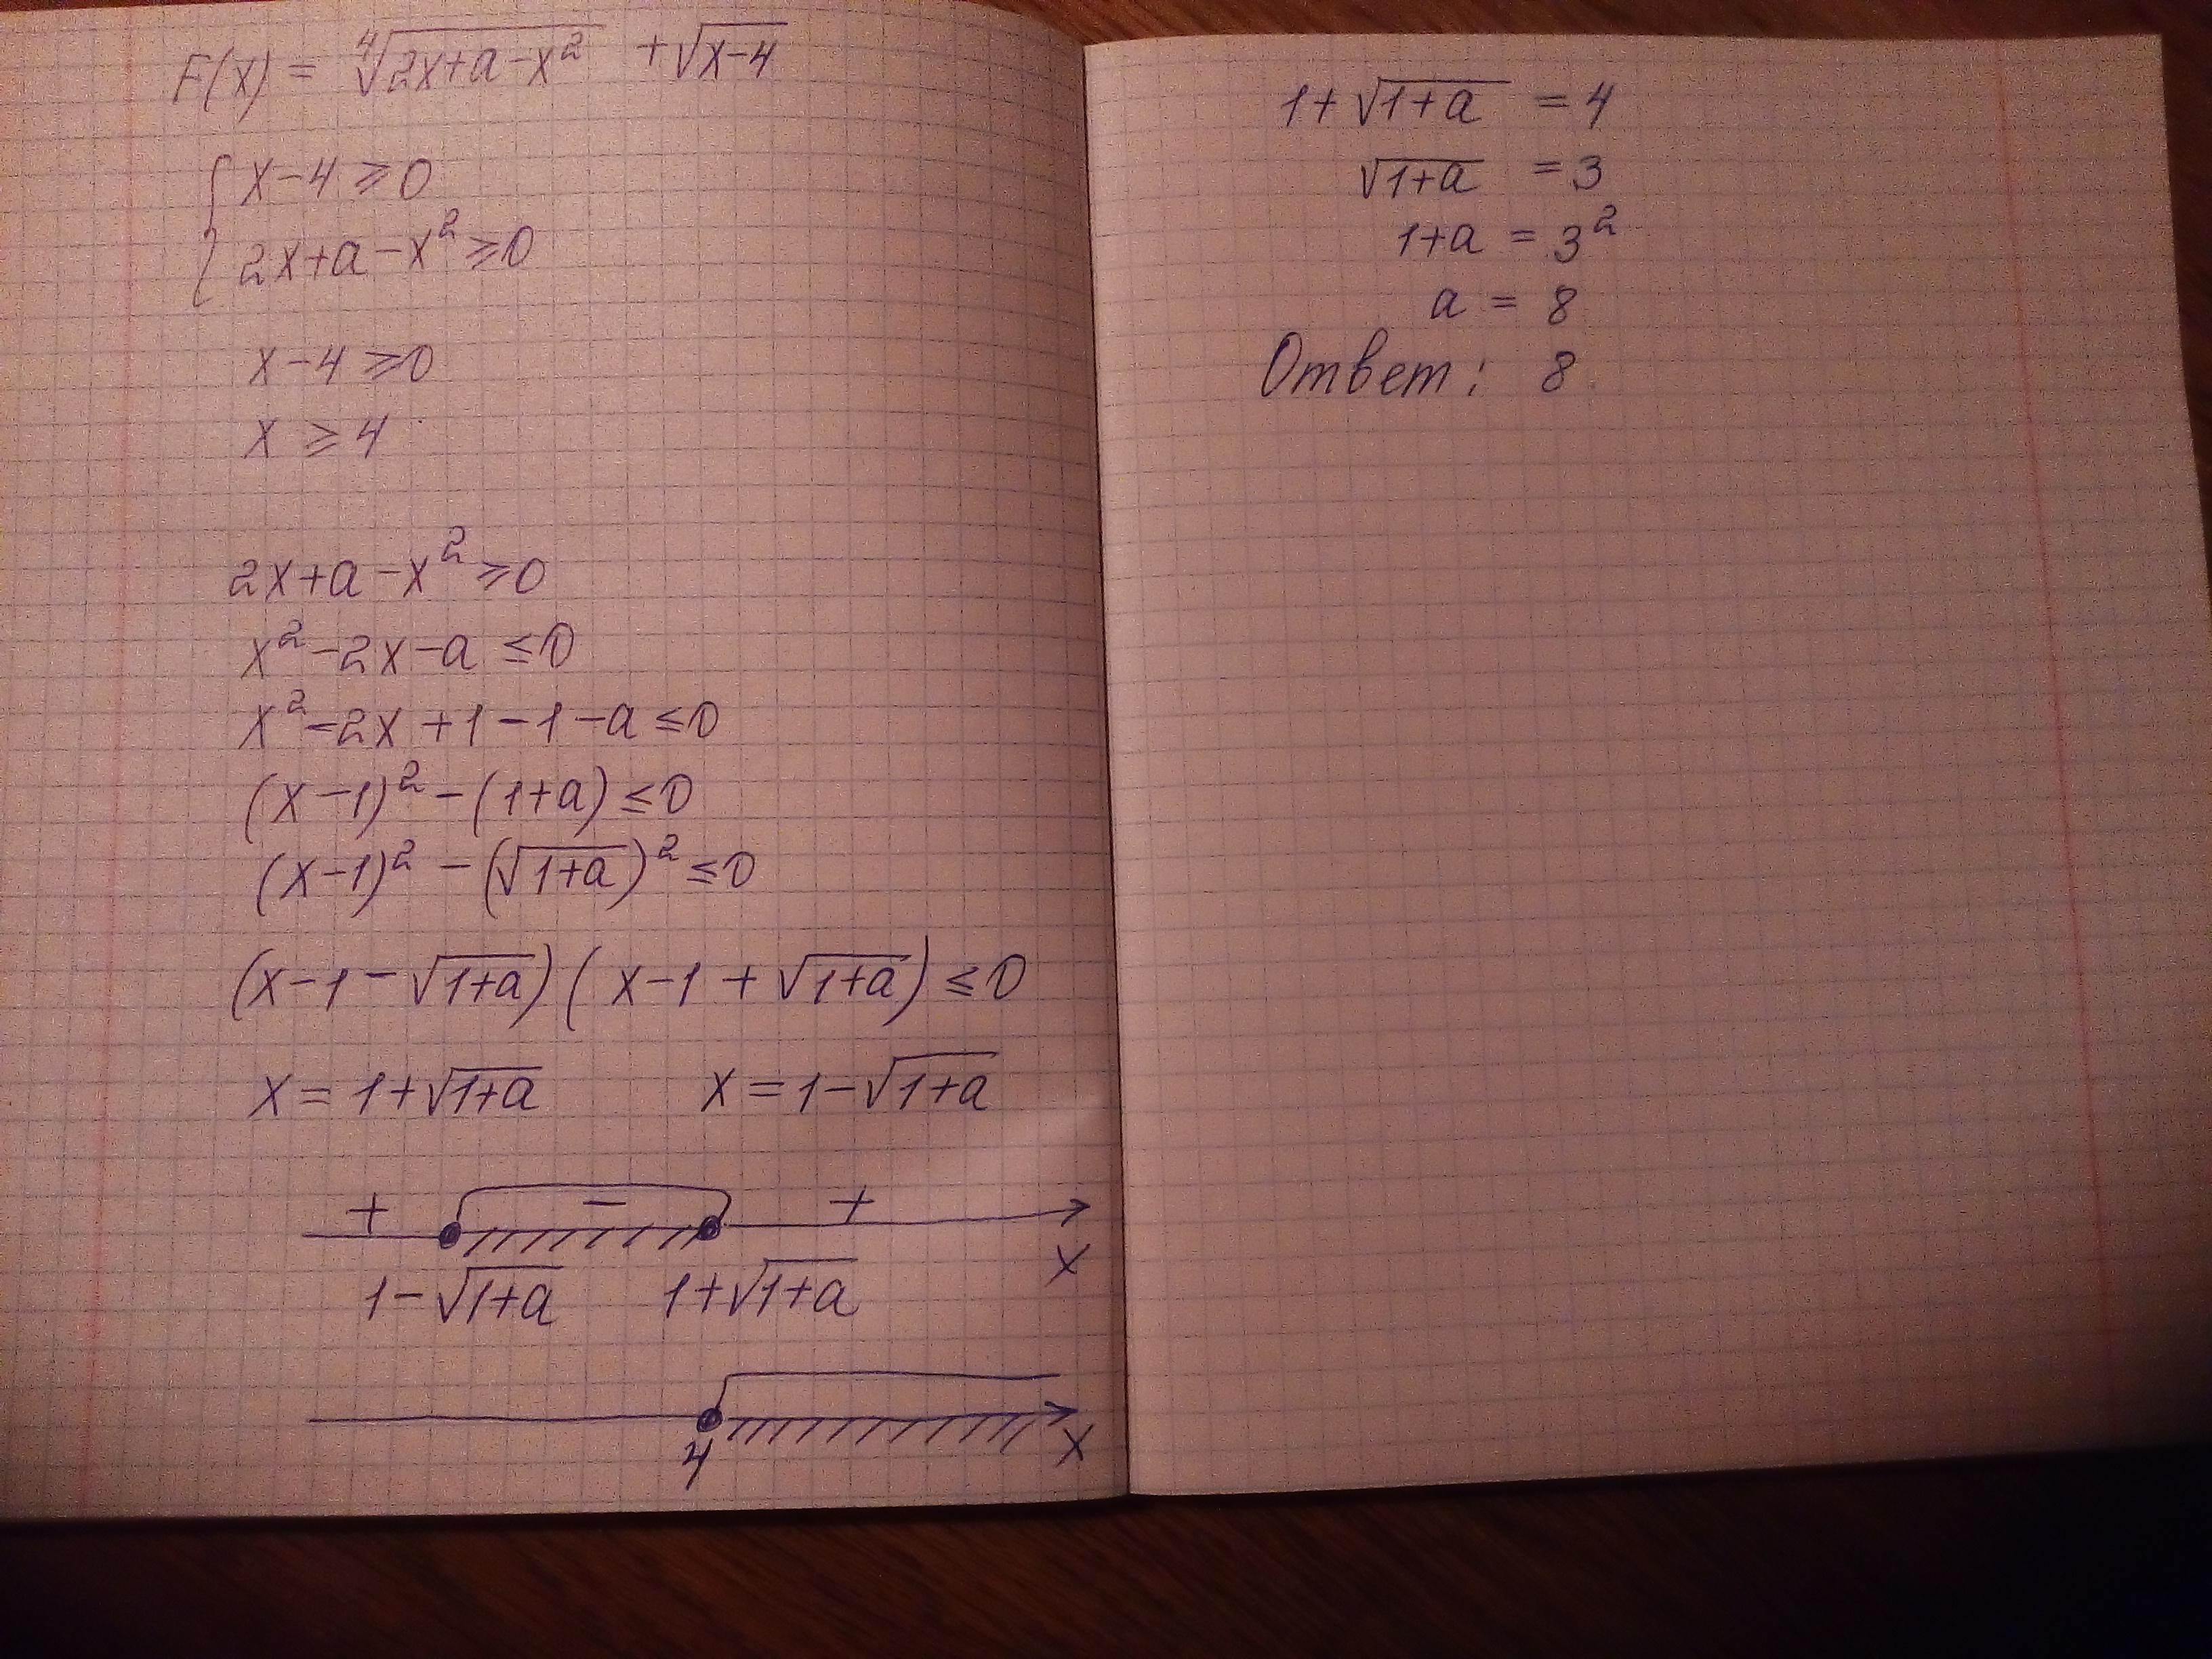 F(x) = ∜(2x+a-x²) + √(x-4)
{ x-4 ≥ 0
2x+a-x² ≥ 0
x-4 ≥ 0
x ≥ 4
2x+a-x² ≥ 0
x²-2x-a ≤ 0
x²-2x+1-1-a ≤ 0
(x-1)² - (1+a) ≤ 0
(x-1)² - (√(1+a))² ≤ 0
(x-1-√(1+a)) (x-1+√(1+a)) ≤ 0
x = 1+√(1+a)   x = 1-√(1+a)
+ - +
x
1-√(1+a)   1+√(1+a)
4 x
1+√(1+a) = 4
√(1+a) = 3
1+a = 3²
a = 8
Ответ: 8